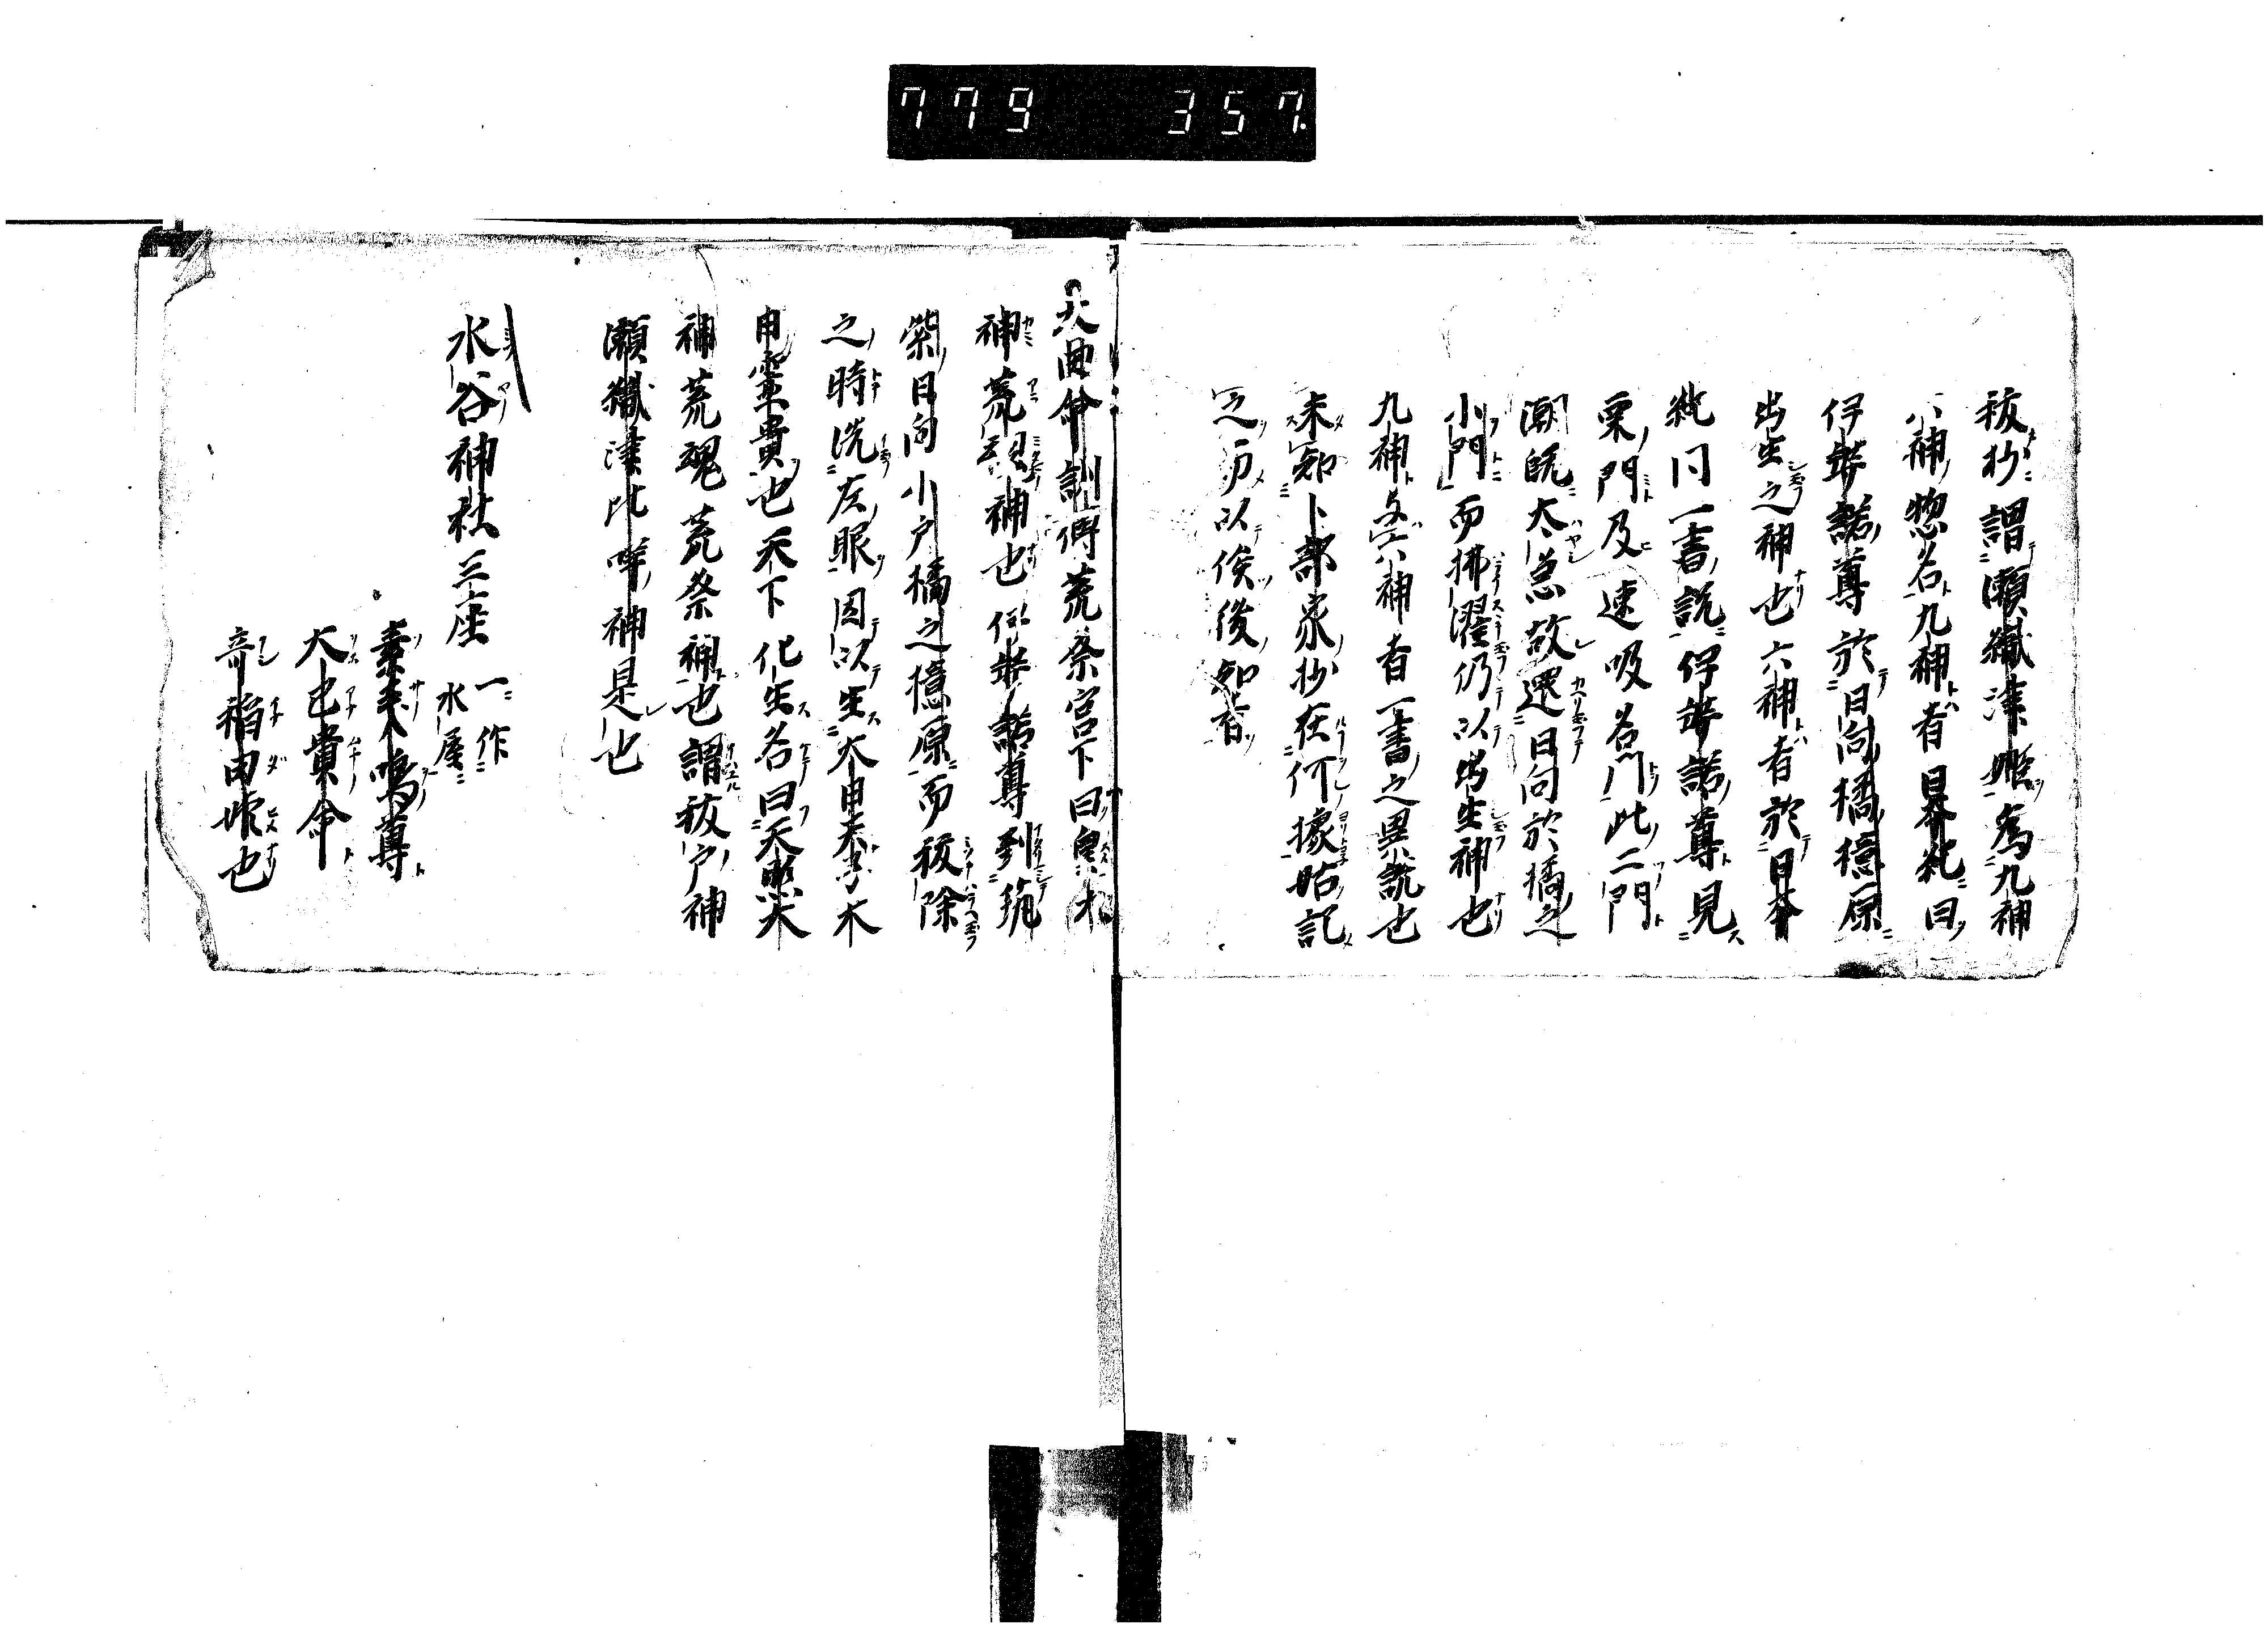 779 357.
祓抄謂瀬織津姫為九神
八神惣名九神者日本紀曰
伊弉諾尊於日向橘檍原
出生之神也六神者於日本
紀同一書説伊弉諾尊見
粟門及速吸名門此二門
潮既太急故還日向於橘之
小門而拂濯仍以出生神也
九神与六神者一書之異説也
未知卜部家抄在何據姑記
之而以俟後知者
大田命訓傳荒祭宮下曰皇太
神荒魂神也伊弉諾尊到筑
紫日向小戸橘之檍原而祓除
之時洗左眼因以生天日天子大
日孁貴也天下化生名曰天照太
神荒魂荒祭神也謂祓戸神
瀬織津比咩神是也
水谷神社三座 一作
水屋
素戔嗚尊
大己貴命
奇稲田姫也